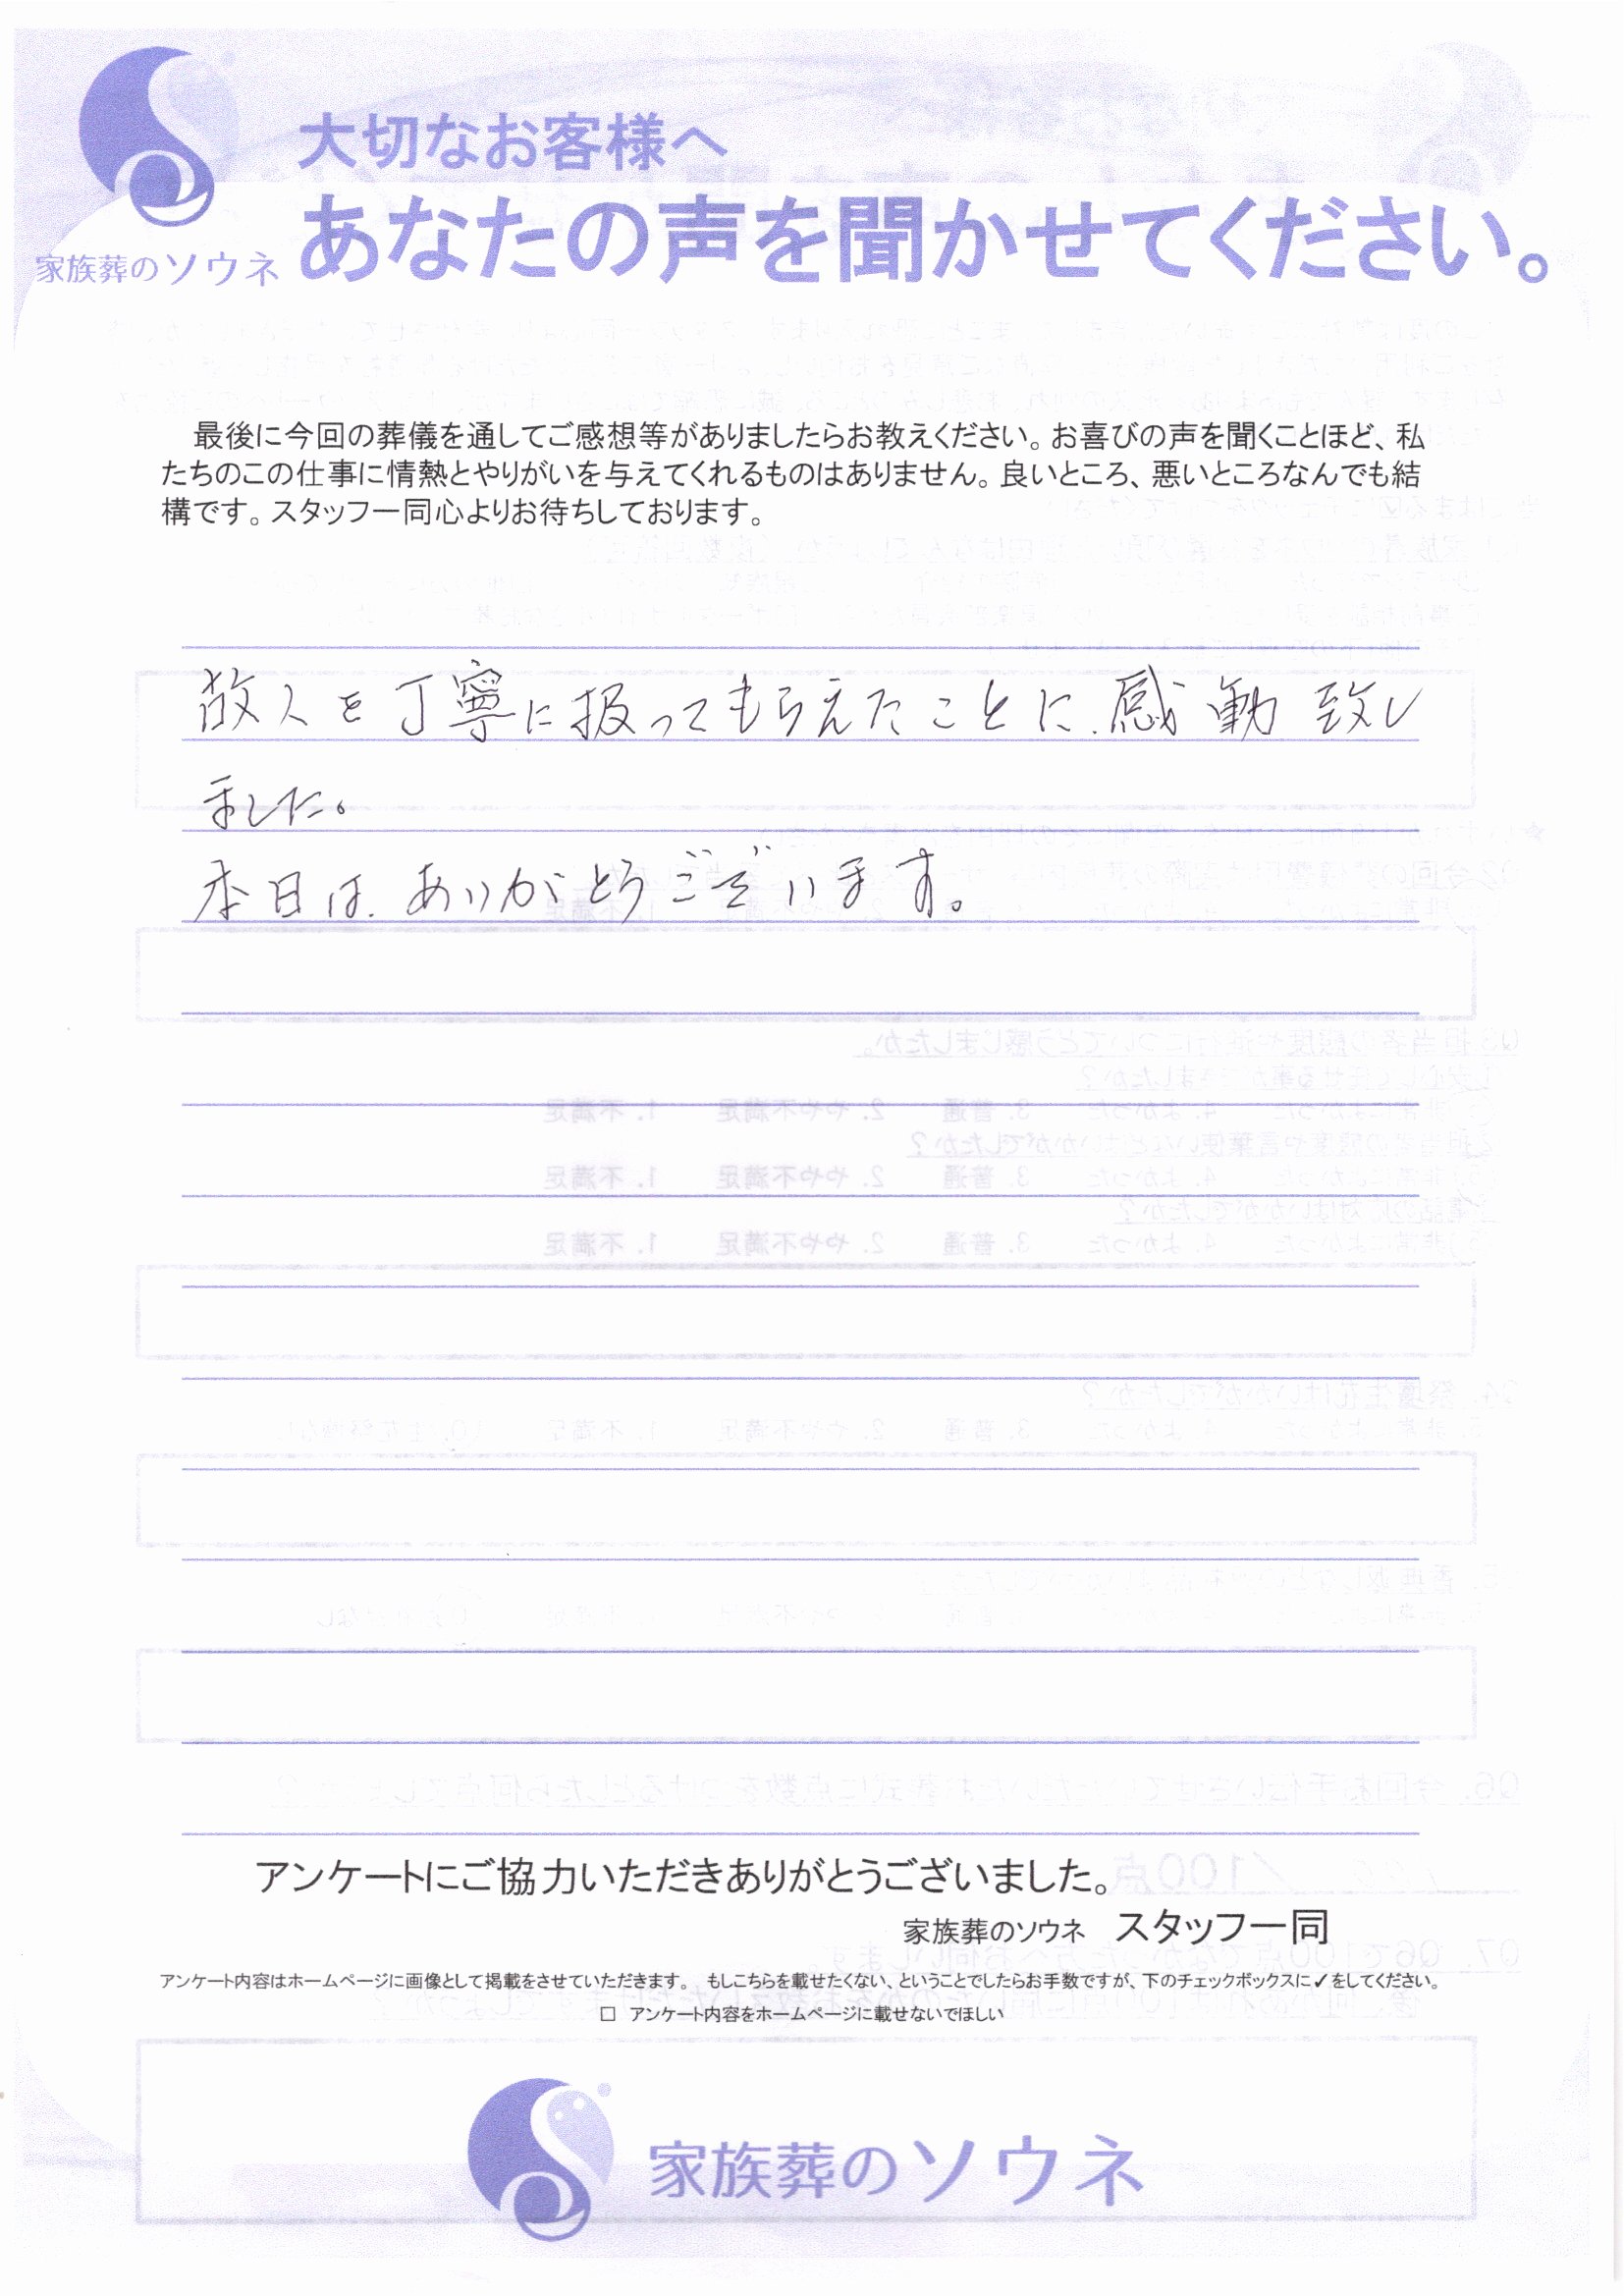 大切なお客様へ
あなたの声を聞かせてください。
家族葬のソウネ
最後に今回の葬儀を通してご感想等がありましたらお教えください。お喜びの声を聞くことほど、私
たちのこの仕事に情熱とやりがいを与えてくれるものはありません。良いところ、悪いところなんでも結
構です。スタッフ一同心よりお待ちしております。
故人を丁寧に扱ってもらえたことに、感動致し
ました。
本日は、ありがとうございます。
アンケートにご協力いただきありがとうございました。
家族葬のソウネ　スタッフ一同
アンケート内容はホームページに画像として掲載をさせていただきます。　もしこちらを載せたくない、ということでしたらお手数ですが、下のチェックボックスに✓をしてください。
□　アンケート内容をホームページに載せないでほしい
家族葬のソウネ